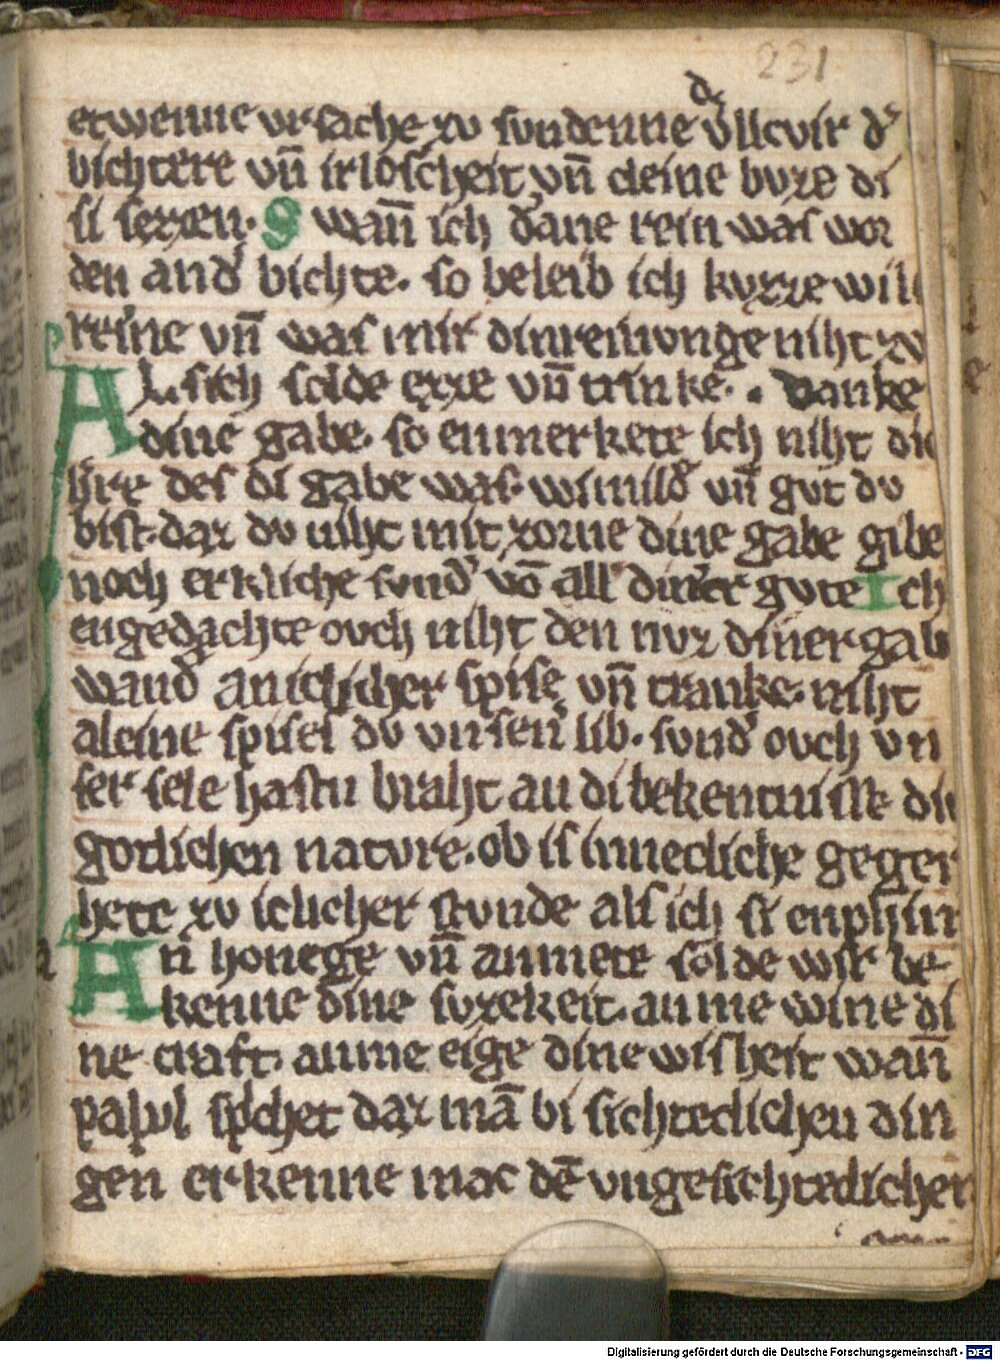 231
etwenne vrsache zv svndenne d' vllevir d'
bichtere vn̄ irloscheit vn̄ cleine bvze di
si sezzen. S wan̄ ich dane rein was wor
den and' bichte. so beleib ich kvrze wil
reine vn̄ was mir din reinvnge niht zv
Als ich solde ezze vn̄ trinke. danke
dine gabe. so enmerkete ich niht di
hre des di gabe was. wi mild' vn̄ gvt dv
bist. daz dv niht mit zorne dine gabe gibe
noch erkliche svnd' vō all' diner gvte Ich
engedachte ovch niht den nvz diner gab
wand' an iclicher spise vn̄ tranke. niht
aleine spises dv vnsen lib. svnd' ovch vn
ser sele hastu braht an di bekentnisse din
gotlichen natvre. ob is innecliche geger
hete zv iclicher stvnde als ich si enphin
An honege vn̄ an mete solde wir be
kenne dine svzekeit. an me wine di
ne craft. an me eige dine wisheit wan̄
pavl sp'chet daz mā bi sichteclichen din
gen erkenne mac dē vngesichteclicher
Digitalisierung gefördert durch die Deutsche Forschungsgemeinschaft - DFG